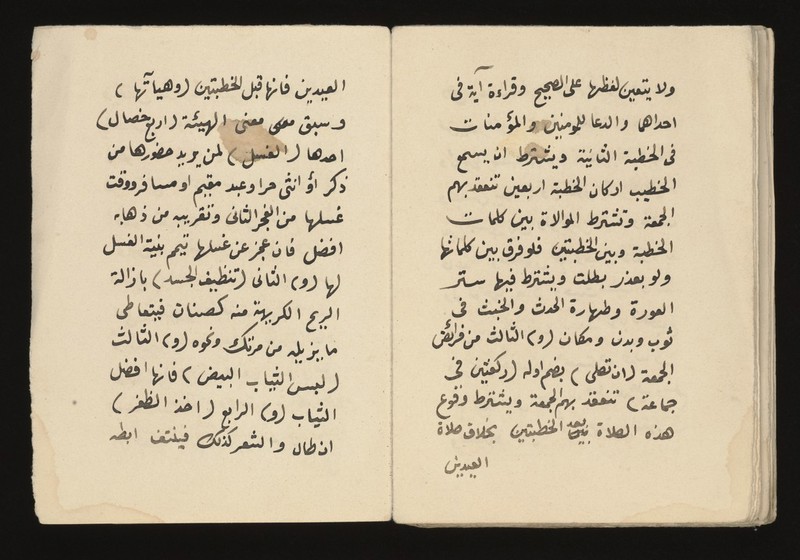 ولا يتعين لفظها على الصحيح وقراءة آية فى
احداهما والدعا للمومنين والمؤمنات
فى الخطبة الثانية ويشترط ان يسمع
الخطيب اركان الخطبة اربعين تنعقد بهم
الجمعة وتشترط الموالاة بين كلمات
الخطبة وبين الخطبتين فلو فرق بين كلماتها
ولو بعذر بطلت ويشترط فيها ستر
العورة وطهارة الحدث والخبث فى
ثوب وبدن ومكان (و) الثالث من فرائض
الجمعة (ان تصلى) بضم اوله (ركعتين فى
جماعة) تنعقد بهم الجمعة ويشترط وقوع
هذه الصلاة بعد الخطبتين بخلاف صلاة
العيدين
العيدين فانها قبل الخطبتين (وهيآتها)
وسبق معنى الهيئة (اربع خصال)
احدها (الغسل) لمن يريد حضورها من
ذكر او انثى حر او عبد مقيم او مسافر ووقت
غسلها من الفجر الثانى وتقريبه من ذهابه
افضل فان عجز عن غسلها تيمم بنية الغسل
لها (و) الثانى (تنظيف الجسد) بازالة
الريح الكريهة منه كصنان فيتعاطى
ما يزيله من مرتك ونحوه (و) الثالث
(لبس الثياب البيض) فانها افضل
الثياب (و) الرابع (اخذ الظفر)
ان طال والشعر كذلك فينتف ابطه